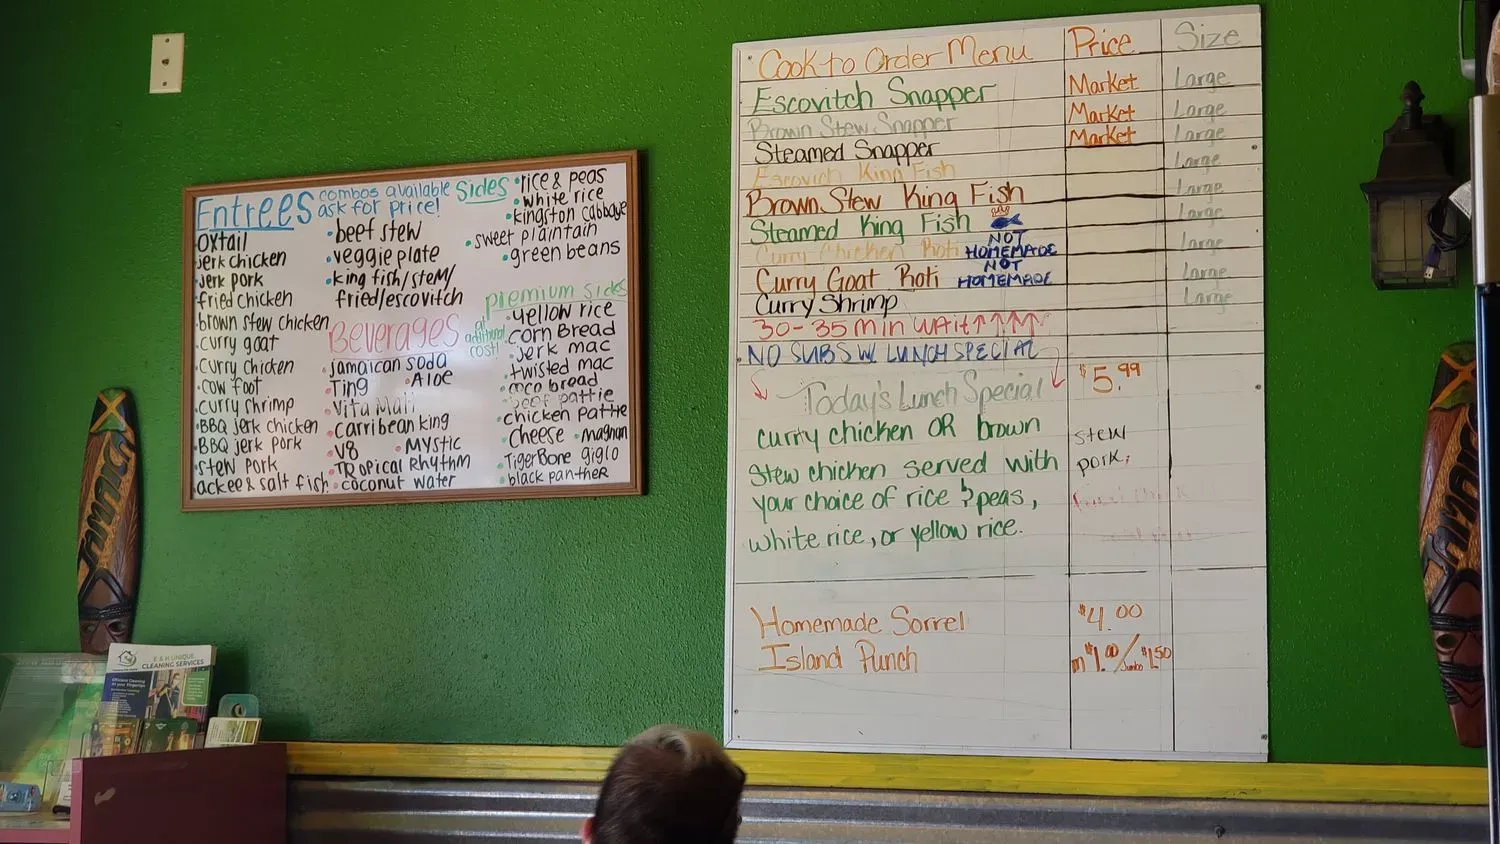 Entrees
combos available
ask for price!
oxtail
jerk chicken
jerk pork
fried chicken
brown stew chicken
curry goat
curry chicken
cow foot
curry shrimp
BBQ jerk chicken
BBQ jerk pork
stew pork
ackee & salt fish
beef stew
veggie plate
king fish/stem/
fried/escovitch
Beverages
jamaican soda
Ting
Aloe
Vita Malt
Carribean king
V8
Mystic
Tropical Rhythm
coconut water
Sides
rice & peas
white rice
kingston cabbage
sweet plaintain
green beans
premium sides
at additional cost!
yellow rice
corn Bread
jerk mac
twisted mac
coco bread
beef pattie
chicken pattie
Cheese
magnum
TigerBone giglo
black panther
Cook to Order Menu Price Size
Escovitch Snapper Market Large
Brown Stew Snapper Market Large
Steamed Snapper Market Large
Escovich King Fish Large
Brown Stew King Fish Large
Steamed King Fish Large
Curry Chicken Roti NOT HOMEMADE Large
Curry Goat Roti NOT HOMEMADE Large
Curry Shrimp Large
30-35 min wait↑↑↑↑
NO SUBS W/ LUNCH SPECIAL
Today's Lunch Special $5.99
curry chicken OR brown
stew chicken served with
your choice of rice & peas,
white rice, or yellow rice.
stew
pork,
Homemade Sorrel $4.00
Island Punch m $1.00/Jumbo $1.50
JAMAICA
E & H UNIQUE
CLEANING SERVICES